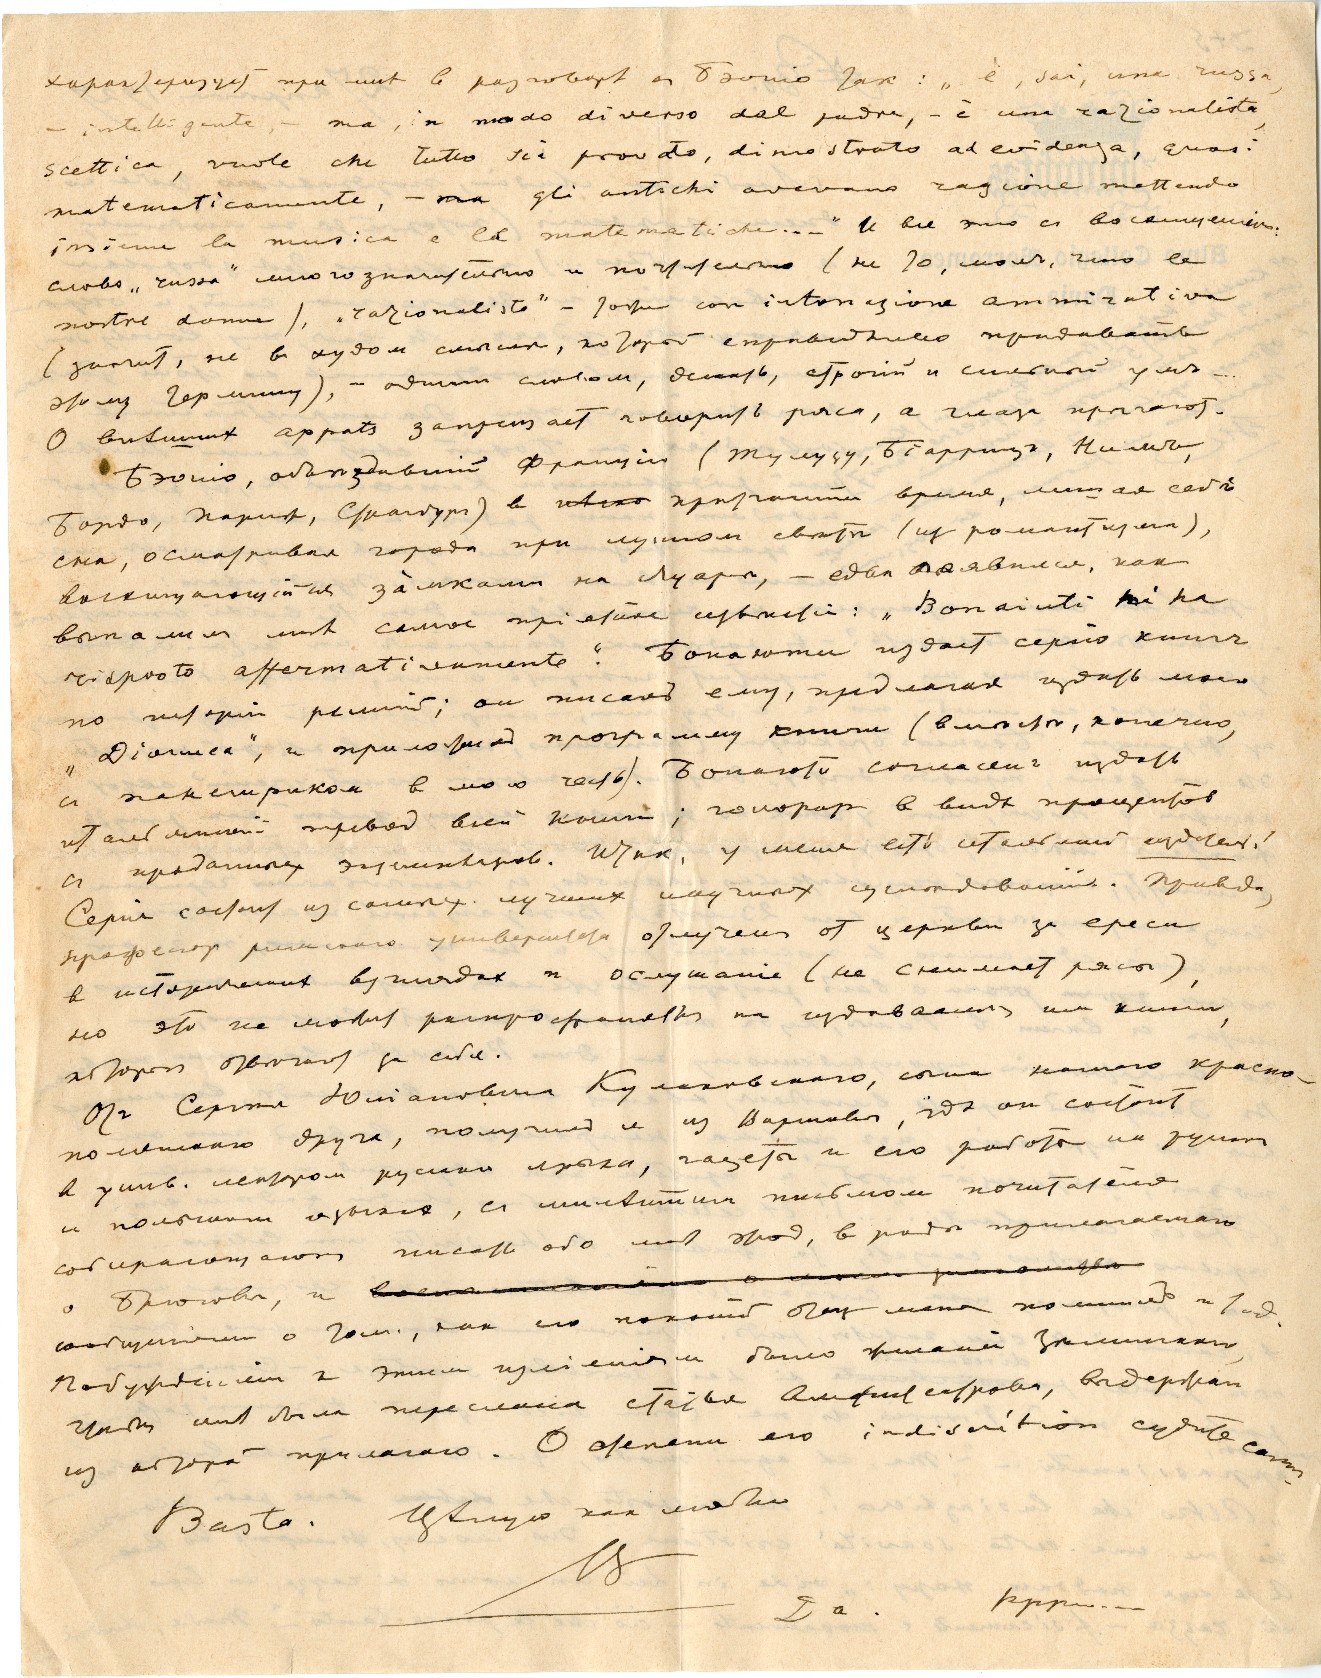 характеризует при мне в разговоре с Бэчіо так: „è, sai, una russa,
– intelligente, – ma, in modo diverso dal padre, – è una razionalista,
scettica, vuole che tutto sia provato, dimostrato ad evidenza, quasi
matematicamente, – ma gli antichi avevano ragione mettendo
insieme la musica e la matematiche..." И все это с восхищением:
слово „russa" многозначительно и почтительно (не то, мол, что le
nostre donne), „razionalista" – тоже con intonazione ammirativa
(значит, не в худом смысле, который справедливо придавать
этому термину), – одним словом, дескать, строгий и сильный ум...
О внешних appâts запрещает говорить ряса, а глаза
Бэчіо, объездивший Францію (Тулузу, Біарриц, Ним,
Бордо, Париж, Страсбург) в время, лишая себя
сна, осматривая города при лунном свете (из романтизма),
восхищающійся за̀мками на Луаре, – едва появился, как
выпалил мне самое пріятное извѣстіе: „Bonaiuti mi ha
risposto affermativamente". Бонаюти издает серію книг
по исторіи религій; он писал ему, предлагая издать моего
„Діониса", и приложил программу книги (вместе, конечно,
с панегириком в мою честь). Бонаюти согласен издать
итальянскій перевод всей книги; гонорар в виде процентов
с проданных экземпляров. Итак, у меня есть итальянскій издатель!
Серія состоит из самых лучших научных изследованій. Правда,
профессор римскаго университета отлучен от церкви за ереси
в исторических взглядах и ослушаніе (не снимает рясы),
но это не может распространяться на издаваемыя им книги,
которыя отвечают за себя.
От Сергея Юліановича Кулаковскаго, сына нашего красно-
полянскаго друга, получил я из Варшавы, где он состоит
в унив. лектором русскаго языка, газеты и его работы на русском
и польском языках, с милейшим письмом почитателя
собирающагося писать обо мне этюд, в роде прилагаемаго
о Брюсове, и
сообщеніем о том, как его покойный отец меня поминал и т. д.
Побужденіем к этим изліяніям было желаніе Зелинскаго,
чтобы мне была переслана статья Амфитеатрова, выдержки
из которой прилагаю. О степени его indiscrétion судите сами.
Basta. Целую как люблю
В
Σα.